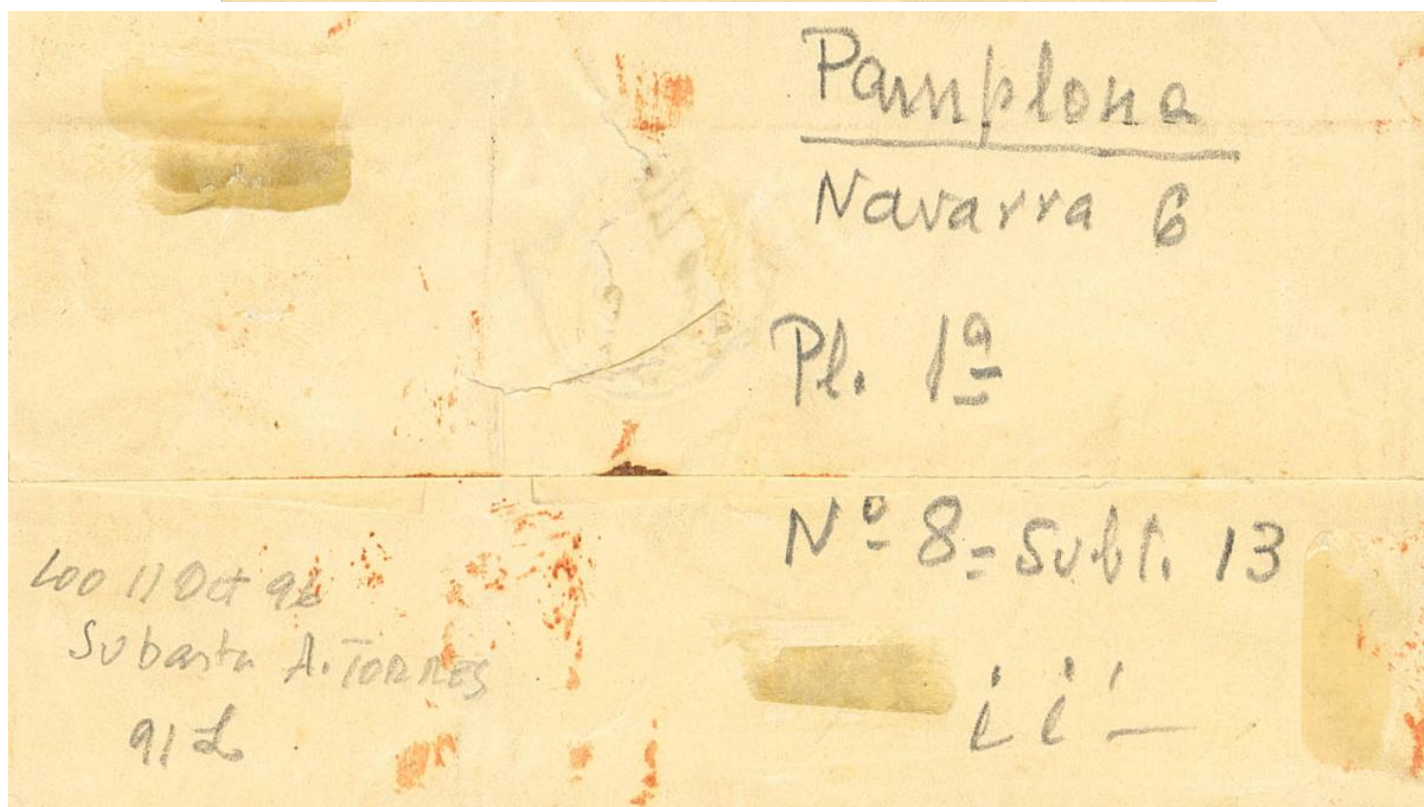 Pamplona
Navarra 6
Pl. 1ª
Nº 8 = Subt. 13
11 Oct 96
Subasta A. TORRES